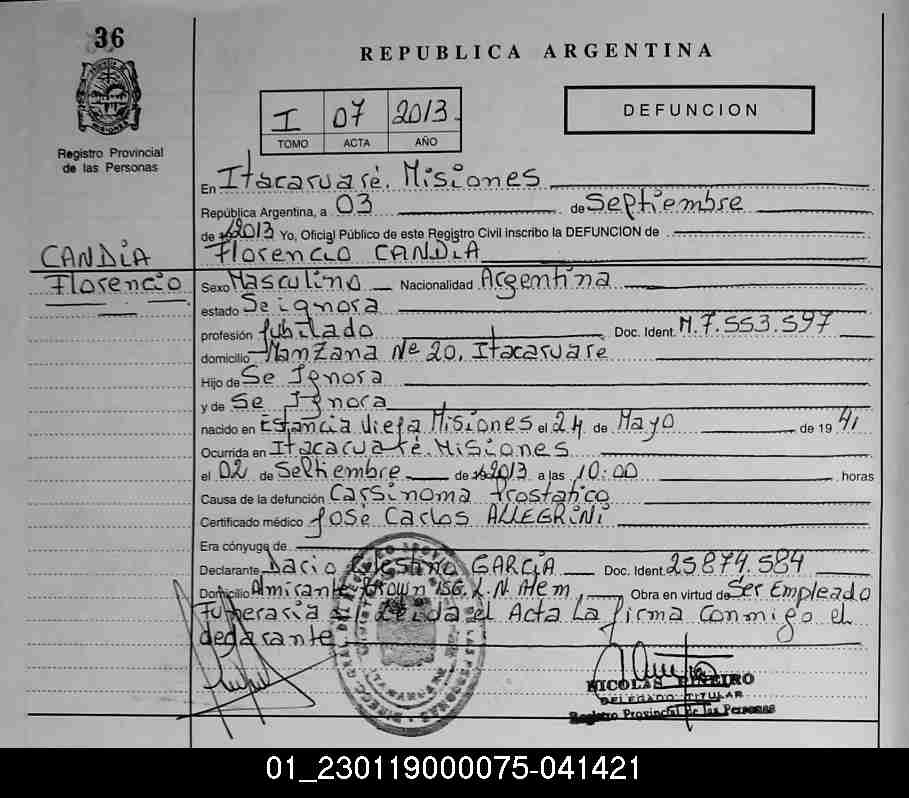 36
REPUBLICA ARGENTINA
I 07 2013
TOMO ACTA AÑO
DEFUNCION
Registro Provincial
de las Personas
En Itacaruaré. Misiones
República Argentina, a 03 de Septiembre
de 2013 Yo, Oficial Público de este Registro Civil inscribo la DEFUNCION de
CANDIA
Florencio CANDIA
Florencio
Sexo Masculino Nacionalidad Argentina
estado Se ignora
profesión Jubilado Doc. Ident. M.7.553.597
domicilio Manzana Nº 20, Itacaruaré
Hijo de Se Ignora
y de Se Ignora
nacido en Estancia Vieja Misiones el 24 de Mayo de 19 41
Ocurrida en Itacaruaré. Misiones
el 02 de Septiembre de 2013 a las 10:00 horas
Causa de la defunción Carsinoma Prostatico
Certificado médico José Carlos ALLEGRINI
Era cónyuge de
Declarante Dario Celestino GARCIA Doc. Ident. 25.874.584
Domicilio Amirante Brown 156. L.N. Alem, Obra en virtud de Ser Empleado
Funeraria Leida el Acta La firma Conmigo el
declarante
NICOLAS PIÑEIRO
DELEGADO TITULAR
Registro Provincial de las Personas
01_230119000075-041421